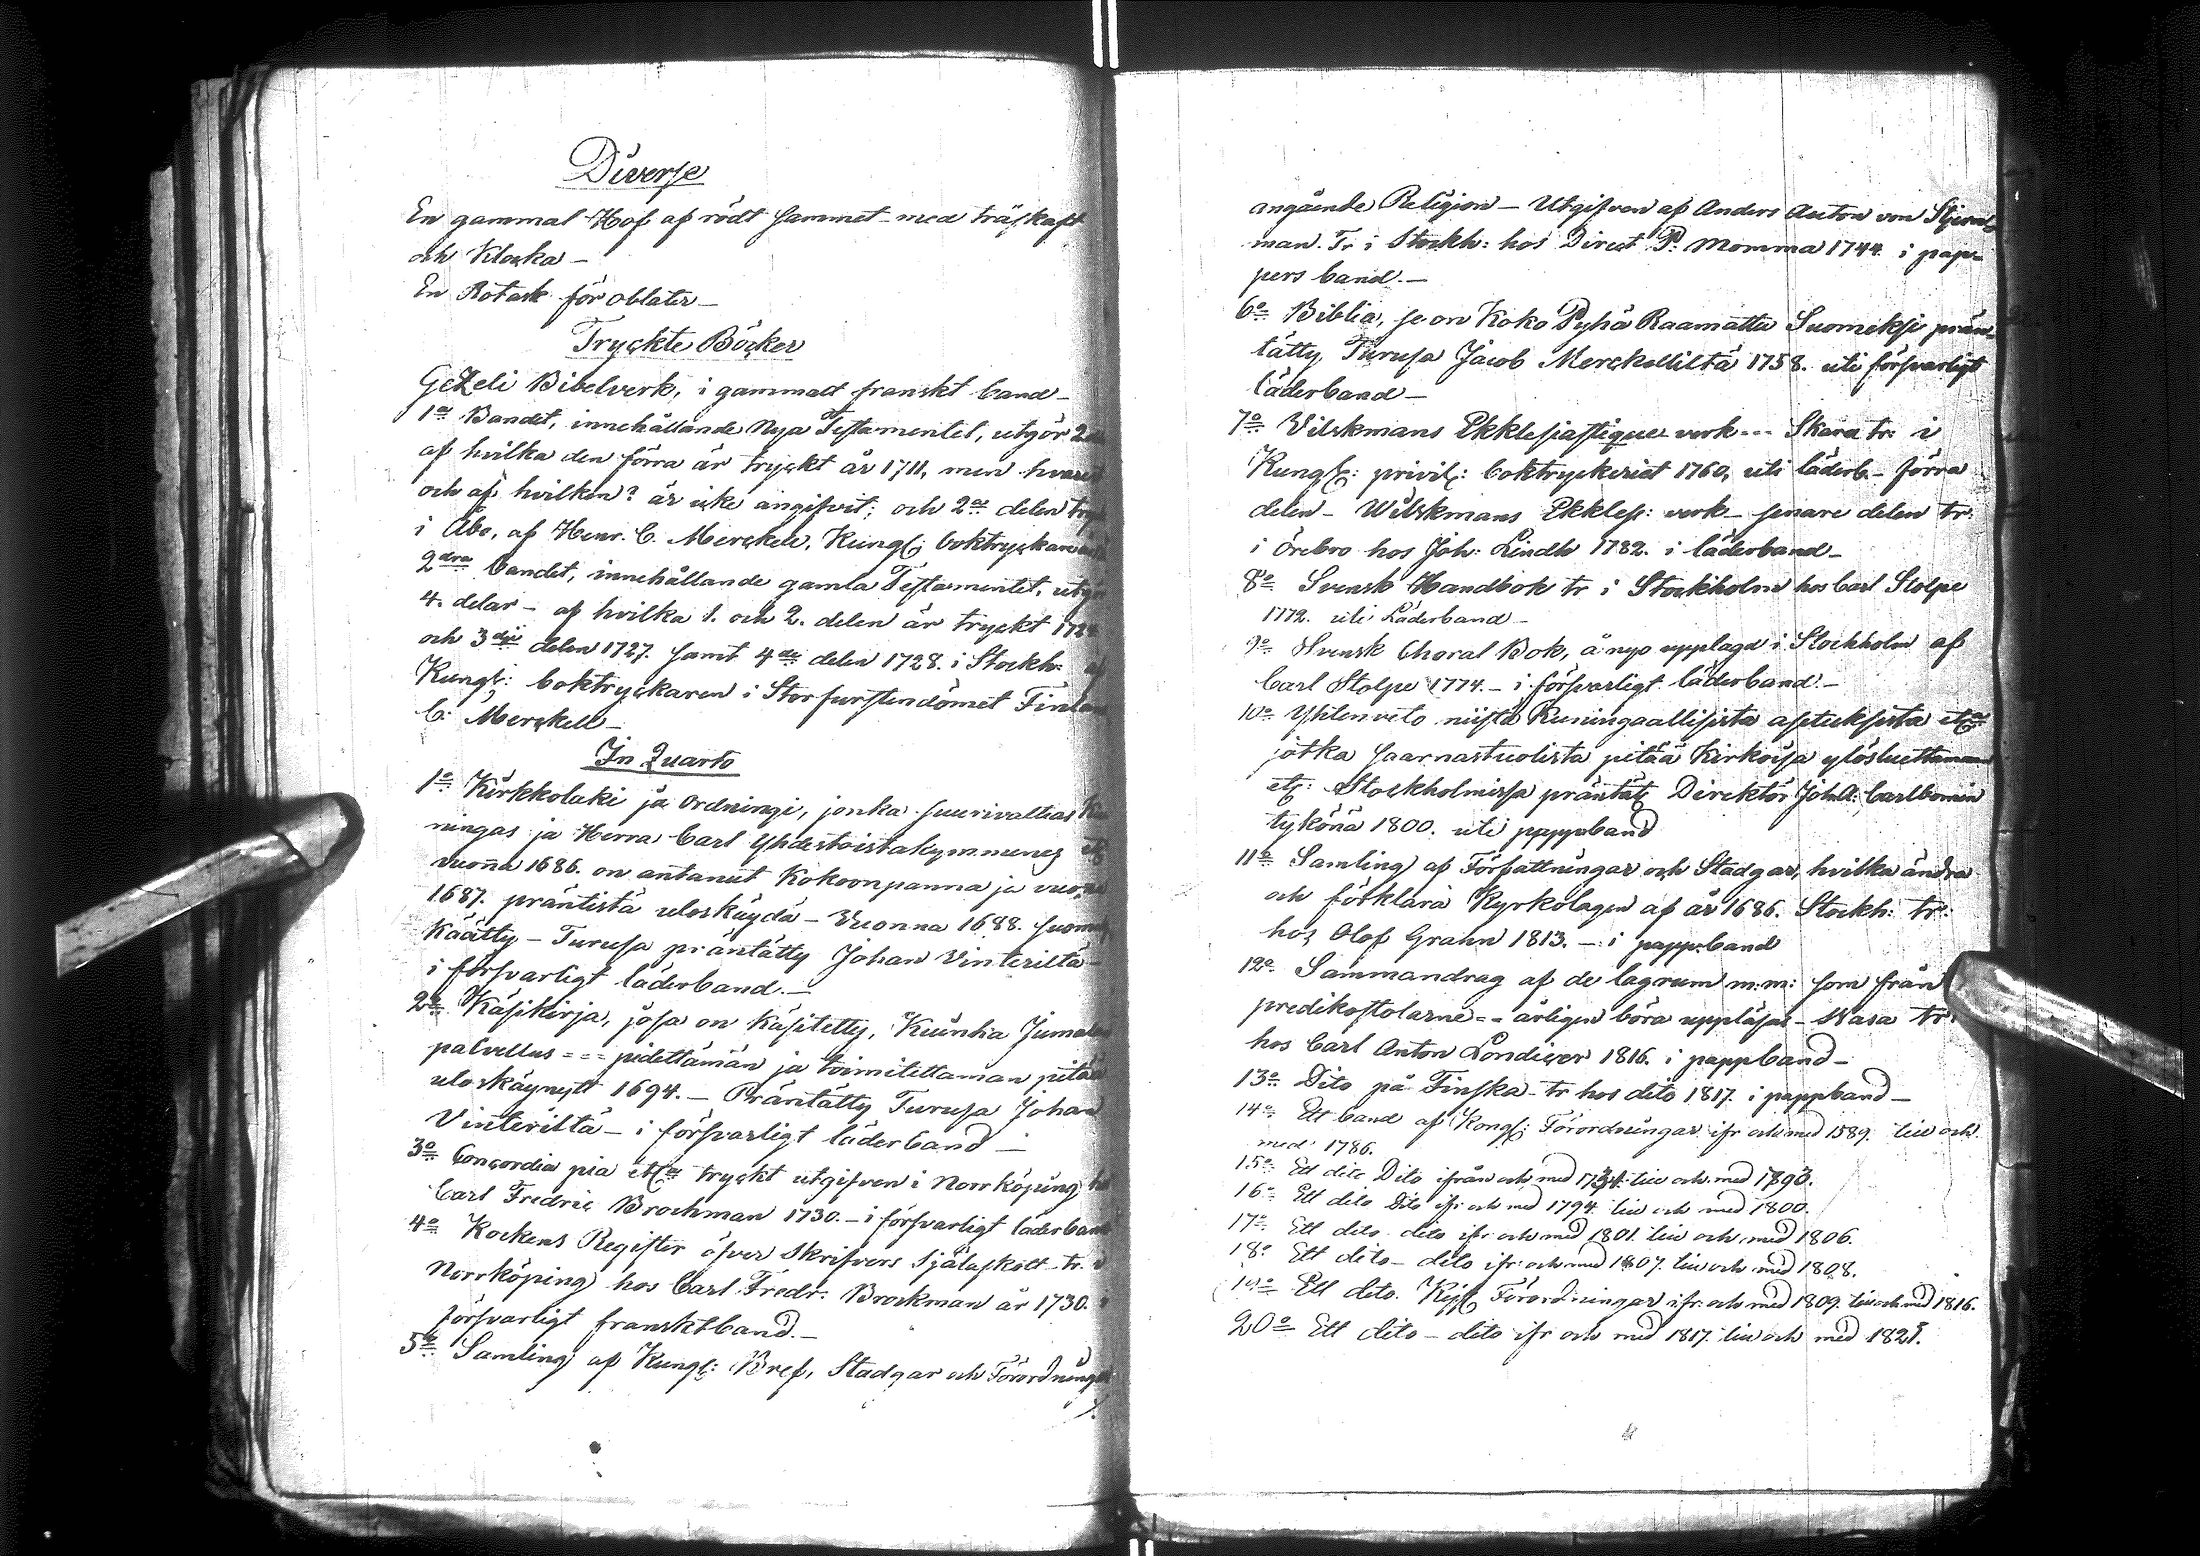 Diverse
En gammal Hof af rödt sammet med träskaft
och Klocka –
En Botask för oblater –
Tryckte Böcker
Gezeli Bibelverk, i gammalt franskt band –
1a Bandet, innehållande Nya Testamentet, utgör 2
af hvilka den förra är tryckt år 1711, men hvar
och af hvilken? är icke angifvit; och 2a delen
i Åbo, af Henr. C. Merckell, Kungl: boktryckare
2dra bandet, innehållande gamla Testamentet,
4. delar – af hvilka 1. och 2. delen är tryckt
och 3dje delen 1727. samt 4de delen 1728. i Stockh:
Kungl: boktryckaren i Storfurstendömet
C. Merckell –
In Quarto
1o Kirkkolaki ja ordningi, jonka suurivaltias
ningas ja Herra Carl Yhdestoistakymmenes
vuonna 1686. on antanut Kokoonpanna ja
1687. präntistä uloskäydä – Vuonna 1688.
käätty – Turusa präntätty Johan Vinteriltä –
i försvarligt läderband. –
2o Käsikirja, josa on Käsitetty, Kuinka
palvellus = = = pidettämän ja toimitettaman
uloskäynytt 1694. – Präntätty Turusa Johan
Vinteriltä – i försvarligt läderband –
3o Concordia pia etc tryckt utgifven i Norrköping
Carl Fredric Brochman 1730. – i försvarligt
4o Kockens Register öfver Skrifvers Själaskatt – tr.
Norrköping hos Carl Fredr: Brockman år 1730.
försvarligt fransktband. –
5o Samling af Kungl: Bref, Stadgar och
angående Religion – Utgifven af Anders Anton von
man. Tr. i Stockh: hos Direct P: Momma 1744. i pap-
pers band. –
6o Biblia, se on Koko Pyhä Raamattu Suomeksi prän-
tätty Turusa Jacob Merckelliltä 1758. uti försvarligt
läderband –
7o Vilskmans Ekklesiastique verk – – – Skara tr: i
Kungl: privil: boktryckeriet 1760, uti läderb – förra
delen – Wilskmans Ekkles: verk – senare delen tr:
i Örebro hos Joh: Lindh 1782. i läderband –
8o Svensk Handbok tr i Stockholm hos Carl Stolpe
1772. uti Läderband –
9o Svensk Choral Bok, å nyo upplagd i Stockholm af
Carl Stolpe 1774. – i försvarligt läderband –
10o Yhtenveto niistä Kuningaallisista asetuksista
jotka saarnastuolista pitää Kirkoisa
etc: Stockholmissa präntätt Direktör Joh. A: Carlbomin
tykönä 1800. uti pappband
11o Samling af Författningar och Stadgar, hvilka ändra
och förklara Kyrkolagen af år 1686. Stockh: tr:
hos Olof Grahn 1813. – i pappband
12o Sammandrag af de lagrum m:m: som från
predikostolarne – – årligen böra uppläsas – Skara tr:
hos Carl Anton Londicer 1816. i pappband –
13o Dito på Finska – tr hos dito 1817. i pappband –
14o Ett band af Kongl: Förordningar ifr och med 1589. till och
med 1786.
15o Ett dito Dito ifrån och med till och med
16o Ett dito Dito ifr och med 1794 till och med 1800.
17o Ett dito dito ifr och med 1801. till och med 1806.
18o Ett dito – dito ifr: och med 1807. till och med 1808.
19o Ett dito. Förordningar ifr: och med 1809. till och med 1816.
20o Ett dito – dito ifr och med 1817. till och med